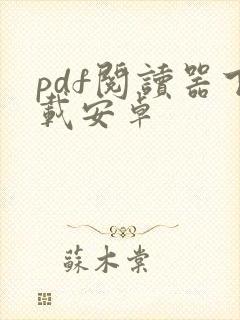 pdf閱讀器下
載安卓
蘇木棠